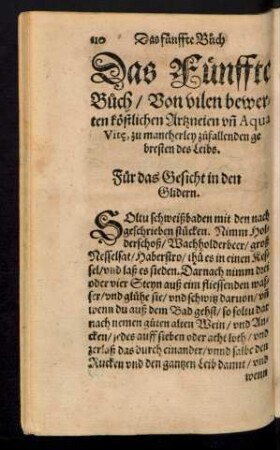 210 Das fünffte Bůch
Das Fünffte
Bůch / Von vilen bewer-
ten köstlichen Artzneien vñ Aqua
Vitę, zu mancherley zůfallenden ge
bresten des Leibs.
Für das Gesicht in den
Glidern.
SOltu schweißbaden mit den nach
geschrieben stücken. Nimm Hol-
derschoß / Wachholderbeer / groß
Nesselsat / Haberstro / thů es in einen Kes-
sel / vnd laß es sieden. Darnach nimm drei
oder vier Steyn auß eim fliessenden was-
ser / vnd glühe sie / vnd schwitz daruon / vñ
wenn du auß dem Bad gehst / so soltu dar
nach nemen gůten alten Wein / vnd An-
cken / jedes auff sieben oder acht loth / vnd
zerlaß das durch einander / vnnd salbe den
Rucken vnd den gantzen Leib damit / vnd
wenn